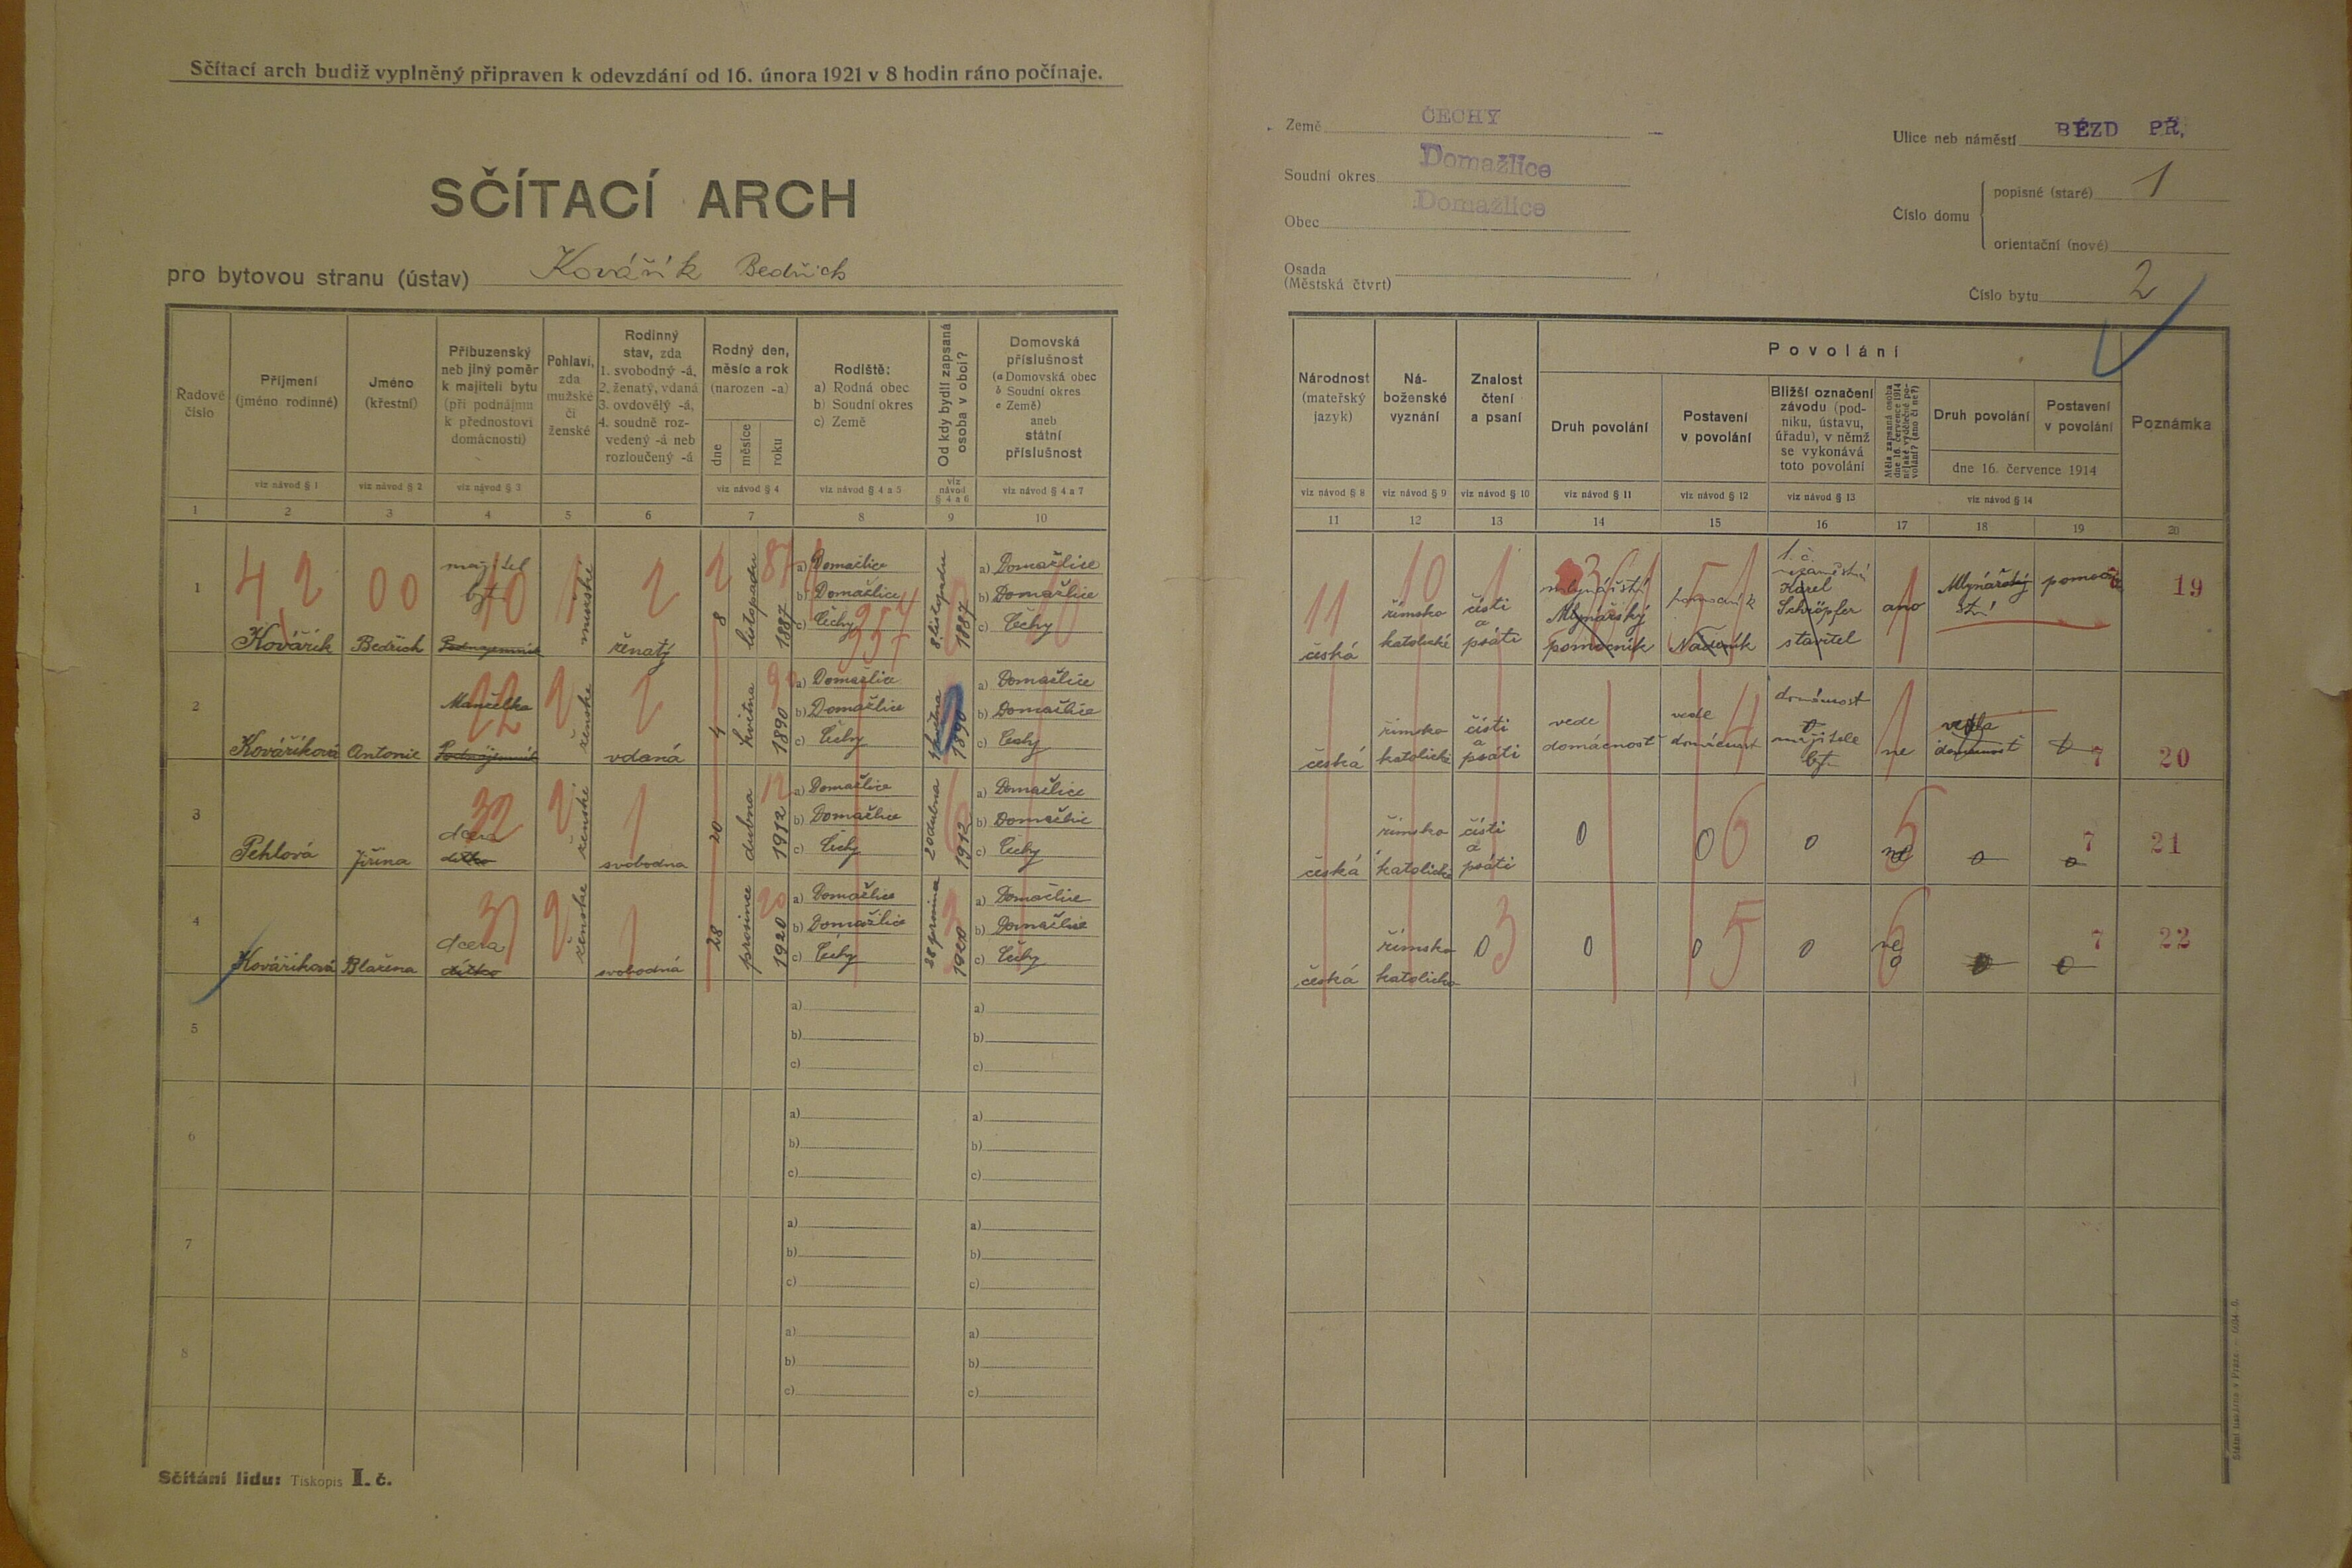 Sčítací arch budiž vyplněný připraven k odevzdání od 16. února 1921 v 8 hodin ráno počínaje.
SČÍTACÍ ARCH
pro bytovou stranu (ústav) Kovářík Bedřich
Řadové číslo
Příjmení (jméno rodinné)
viz návod § 1
Jméno (křestní)
viz návod § 2
Příbuzenský neb jiný poměr k majiteli bytu (při podnájmu k přednostovi domácnosti)
viz návod § 3
Pohlaví, zda mužské či ženské
Rodinný stav, zda 1. svobodný -á, 2. ženatý, vdaná 3. ovdovělý -á, 4. soudně rozvedený -á neb rozloučený -á
Rodný den, měsíc a rok (narozen -a)
dne měsíce roku
viz návod § 4
Rodiště: a) Rodná obec b) Soudní okres c) Země
viz návod § 4 a 5
Od kdy bydlí zapsaná osoba v obci?
viz návod § 4 a 6
Domovská příslušnost (a Domovská obec b Soudní okres c Země) aneb státní příslušnost
viz návod § 4 a 7
1 2 3 4 5 6 7 8 9 10
1 Kovářík Bedřich majitel bytu Podnájemník mužské ženatý 8 listopadu 1887
a) Domažlice b) Domažlice c) Čechy
8. listopadu 1887
a) Domažlice b) Domažlice c) Čechy
42 00 10 1 2 2 87
2 Kováříková Antonie Manželka Podnájemník ženské vdaná 4 května 1890
a) Domažlice b) Domažlice c) Čechy
května 1890
a) Domažlice b) Domažlice c) Čechy
22 2 2 90
3 Pehlová Jiřina dcera dítko ženské svobodna 20 dubna 1912
a) Domažlice b) Domažlice c) Čechy
20 dubna 1912
a) Domažlice b) Domažlice c) Čechy
32 2 1 12
4 Kováříková Blažena dcera dítko ženske svobodná 28 prosince 1920
a) Domažlice b) Domažlice c) Čechy
28 prosince 1920
a) Domažlice b) Domažlice c) Čechy
2 1 20
5 a) b) c) a) b) c)
6 a) b) c) a) b) c)
7 a) b) c) a) b) c)
8 a) b) c) a) b) c)
Sčítání lidu: Tiskopis I. č.
Země ČECHY
Soudní okres Domažlice
Obec Domažlice
Osada (Městská čtvrt)
Ulice neb náměstí BÉZD PŘ,
Číslo domu
popisné (staré) 1
orientační (nové)
Číslo bytu 2
Národnost (mateřský jazyk)
viz návod § 8
Náboženské vyznání
viz návod § 9
Znalost čtení a psaní
viz návod § 10
Povolání
Druh povolání
viz návod § 11
Postavení v povolání
viz návod § 12
Bližší označení závodu (podniku, ústavu, úřadu), v němž se vykonává toto povolání
viz návod § 13
Měla zapsaná osoba dne 16. července 1914 nějaké výdělečné povolání? (ano či ne?)
Druh povolání
Postavení v povolání
dne 16. července 1914
viz návod § 14
Poznámka
11 12 13 14 15 16 17 18 19 20
česká římsko katolické čísti a psáti mlynářství Mlynářský pomocník pomocník Nádeník Karel Schröpfer stavitel ano Mlynářský pomocník 19
11 10 1 1
česká římsko katolické čísti a psáti vede domácnost vede domácnost domácnost majitele bytu ne vedla domácnost 0 7 20
4 1
česká římsko katolické čísti a psáti 0 0 6 0 ne 5 0 0 7 21
česká římsko katolicko 0 3 0 0 5 0 ne 0 6 0 0 7 22